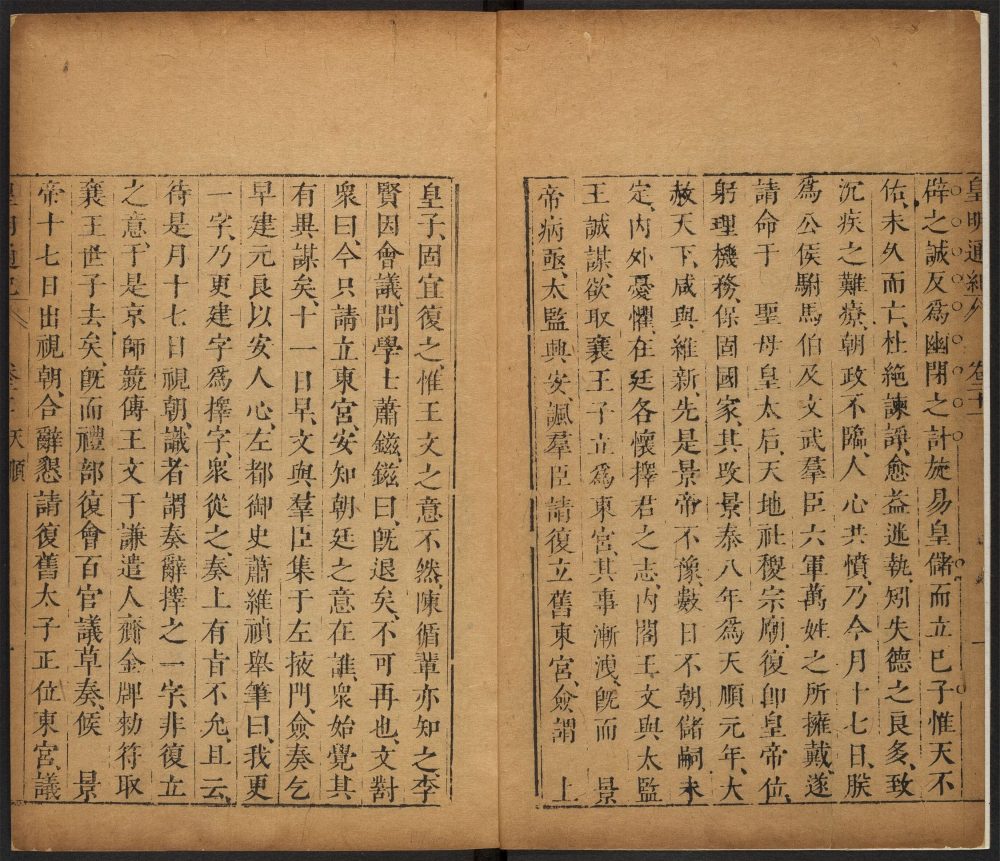 皇明通紀 卷二十一
僻之誠反爲幽閉之計旋易皇儲而立巳子惟天不
佑未久而亡杜絶諫諍愈益迷執矧失德之良多致
沉疾之難療朝政不臨人心共憤乃今月十七日朕
爲公侯駙馬伯及文武羣臣六軍萬姓之所擁戴遂
請命于 聖母皇太后天地社稷宗廟復卽皇帝位
躬理機務保固國家其攺景泰八年爲天順元年大
赦天下咸與維新先是景帝不豫數日不朝儲嗣未
定內外憂懼在廷各懷擇君之志內閣王文與太監
王誠謀欲取襄王子立爲東宮其事漸洩旣而 景
帝病亟太監興安諷羣臣請復立舊東宮僉謂 上
皇子固宜復之惟王文之意不然陳循輩亦知之李
賢因會議問學士蕭鎡鎡曰旣退矣不可再也文對
衆曰今只請立東宮安知朝廷之意在誰衆始覺其
有異謀矣十一日早文與羣臣集于左掖門僉奏乞
早建元良以安人心左都御史蕭維禎舉筆曰我更
一字乃更建字爲擇字衆從之奏上有旨不允且云
待是月十七日視朝識者謂奏辭擇之一字非復立
之意于是京師競傳王文于謙遣人齎金牌勅符取
襄王世子去矣旣而禮部復會百官議草奏候 景
帝十七日出視朝合辭懇請復舊太子正位東宮議
天順